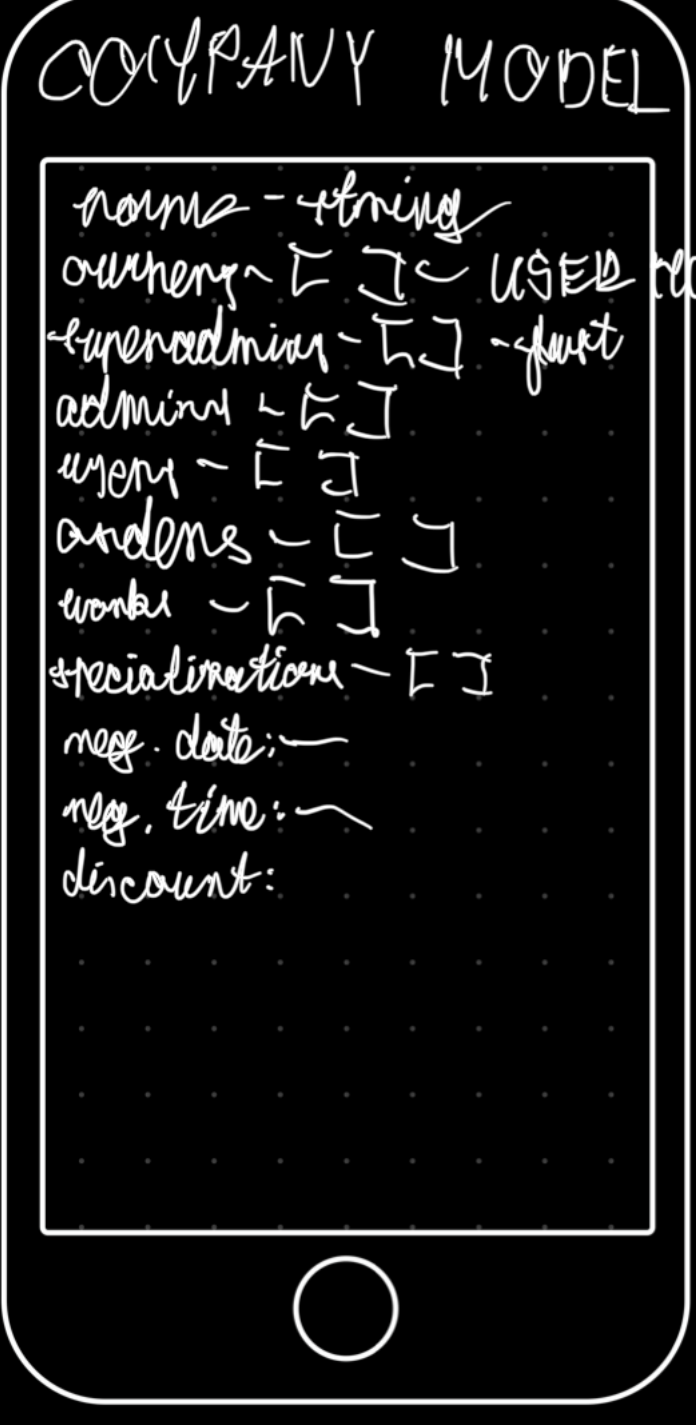 COMPANY MODEL
name - string
owners - [ ] - USER
superadmins - [ ] -
admins - [ ]
users - [ ]
orders - [ ]
works - [ ]
specializations - [ ]
reg. date: -
reg. time: -
discount: